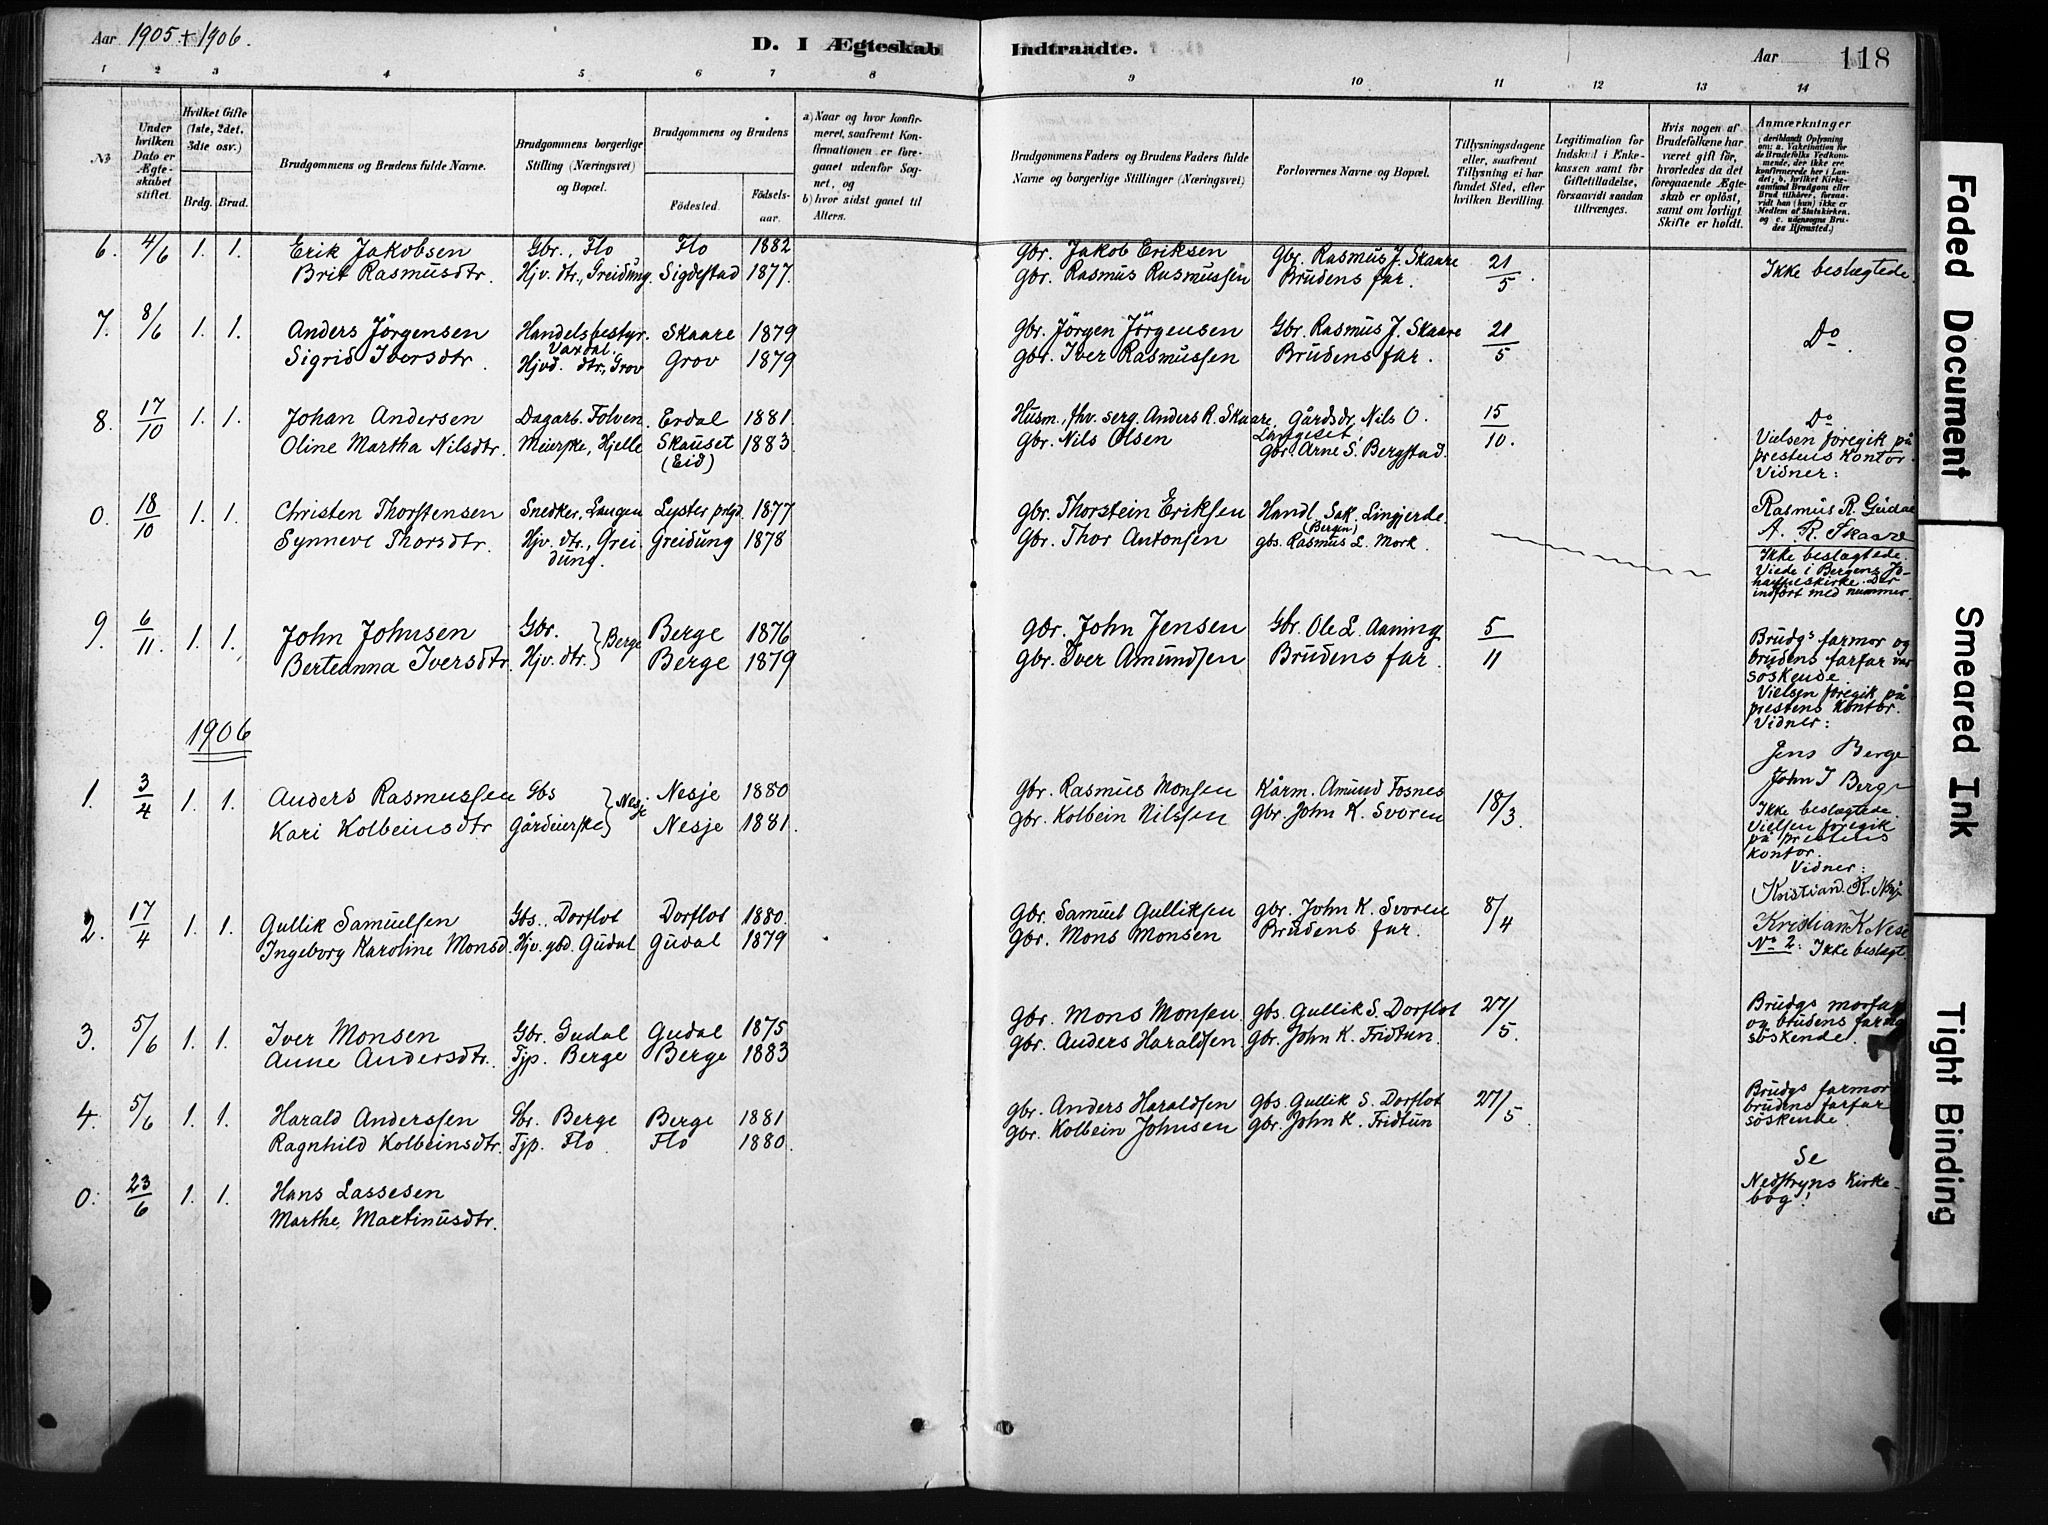 Aar 1905 + 1906.
D. I Ægteskab Indtraadte.
Aar 118
1 2 3 4 5 6 7 8 9 10 11 12 13 14
№
Under hvilken Dato er Ægteskabet stiftet.
Hvilket Gifte (1ste, 2det, 3die osv.)
Brdg. Brud.
Brudgommens og Brudens fulde Navne.
Brudgommens borgerlige Stilling (Næringsvei) og Bopæl.
Brudgommens og Brudens
Födested. Födsels-aar.
a) Naar og hvor konfirmeret, saafremt Konfirmationen er foregaaet udenfor Sognet, og
b) hvor sidst gaaet til Alters.
Brudgommens Faders og Brudens Faders fulde Navne og borgerlige Stillinger (Næringsvei)
Forlovernes Navne og Bopæl.
Tillysningsdagene eller, saafremt Tillysning ei har fundet Sted, efter hvilken Bevilling.
Legitimation for Indskud i Enkekassen samt for Giftetilladelse, forsaavidt saadan tiltrænges.
Hvis nogen af Brudefolkene har været gift för, hvorledes da det foregaaende Ægteskab er oplöst, samt om lovligt Skifte er holdt.
Anmærkninger (deriblandt Oplysning om: a. Vakcination for de Brudefolks Vedkommende, der ikke ere konfirmerede her i Landet; b. hvilket Kirkesamfund Brudgom eller Brud tilhörer, forsaavidt han (hun) ikke er Medlem af Statskirken, og c. udensogns Brudes Hjemsted.)
6. 4/6 1. 1. Erik Jakobsen Gbr., Flo Flo 1882 Gbr. Jakob Eriksen Gbr. Rasmus J. Skaare 21/5 Ikke beslægtede.
Brit Rasmusdtr. Hjv. dtr., Greidung. Sigdestad 1877. Gbr. Rasmus Rasmussen Brudens far.
7. 8/6 1. 1. Anders Jörgensen Handelsbestyr. Vaxdal. Skaare 1879 Gbr. Jörgen Jörgensen Gbr. Rasmus J. Skaare 21/5 Do.
Sigrid Iversdtr. Hjvd. dtr., Grov Grov 1879 Gbr. Iver Rasmussen Brudens far.
8. 17/10 1. 1. Johan Andersen Dagarb. Folven. Erdal 1881. Husm. fhv. serg. Anders R. Skaare, Gårdsdr. Nils O. 15/10. Do
Oline Martha Nilsdtr. Meierske, Hjelle Skauset (Eid) 1883. Gbr. Nils Olsen Gbr. Arne S. Bergstad.
Vielsen foregik på
prestens Kontor.
Vidner:
Rasmus R. Gudal
A. R. Skaare
0. 18/10 1. 1. Christen Thorstensen Snedker, Langen Lyster prgd. 1877 Gbr. Thorstein Eriksen Handl. Sak. Lingjerde. (Bergen)
Synneve Thorsdtr. Hjv. dtr., Greidung. Greidung 1878 Gbr. Thor Antonsen gbs. Rasmus L. Mork.
Ikke beslægtede.
Viede i Bergens Johanneskirke. Der
indført med nummer.
9. 6/11. 1. 1. John Johnsen Gbr. Berge Berge 1876 Gbr. John Jensen Gbr. Ole L. Aaning 5/11
Berteanna Iversdtr. Hjv. dtr. Berge 1879 Gbr. Iver Amundsen Brudens far.
Brudgs farmor og
brudens farfar var
söskende.
Vielsen foregik på
prestens Kontor.
Vidner:
Jens Berge
John I Berge
1906
1. 3/4 1. 1. Anders Rasmussen Gbs Nesje Nesje 1880 Gbr. Rasmus Monsen Kårm. Amund Fosnes 18/3.
Kari Kolbeinsdtr Gårdeierske Nesje 1881. Gbr. Kolbein Nilssen Gbr. John K. Svoren
Ikke beslægtede.
Vielsen foregik
på prestens
Kontor.
Vidner:
Kristian R. Nesje
Kristian K Nese
2. 17/4 1. 1. Gullik Samuelsen Gbs. Dorflot Dorflot 1880. Gbr. Samuel Gulliksen Gbr. John K. Svoren 8/4
Ingeborg Karoline Monsd. Hjv. gbd. Gudal Gudal 1879 Gbr. Mons Monsen Brudens far.
No 2: Ikke beslægt.
3. 5/6 1. 1. Iver Monsen Gbr. Gudal Gudal 1875 Gbr. Mons Monsen Gbs. Gullik S. Dorflot 27/5.
Anne Andersdtr. Tjp. Berge Berge 1883 Gbr. Anders Haraldsen Gbr. John K. Fridtun.
Brudgs morfar
og brudens farfar
söskende.
4. 5/6 1. 1. Harald Anderssen Gbr. Berge Berge 1881 Gbr. Anders Haraldsen Gbs. Gullik S. Dorflot 27/5.
Ragnhild Kolbeinsdtr. Tjp. Flo Flo 1880. Gbr. Kolbein Johnsen Gbr. John K. Fridtun
Brudgs farmor
brudens farfar
söskende.
0. 23/6 1. 1. Hans Lassesen
Marthe Martinusdtr.
Se
Nedstryns Kirke-
bog!
Faded Document
Smeared Ink
Tight Binding